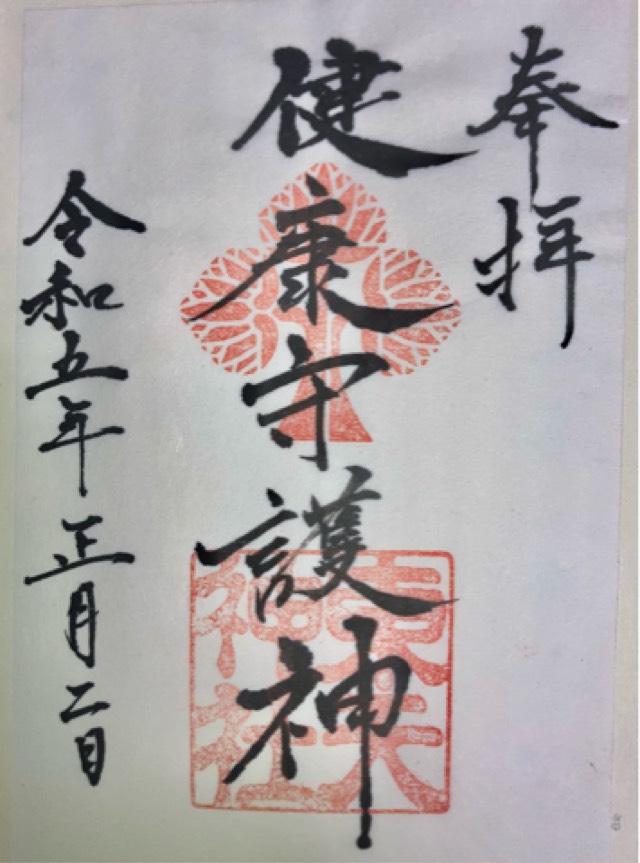 奉拝
健康守護神
令和五年正月二日